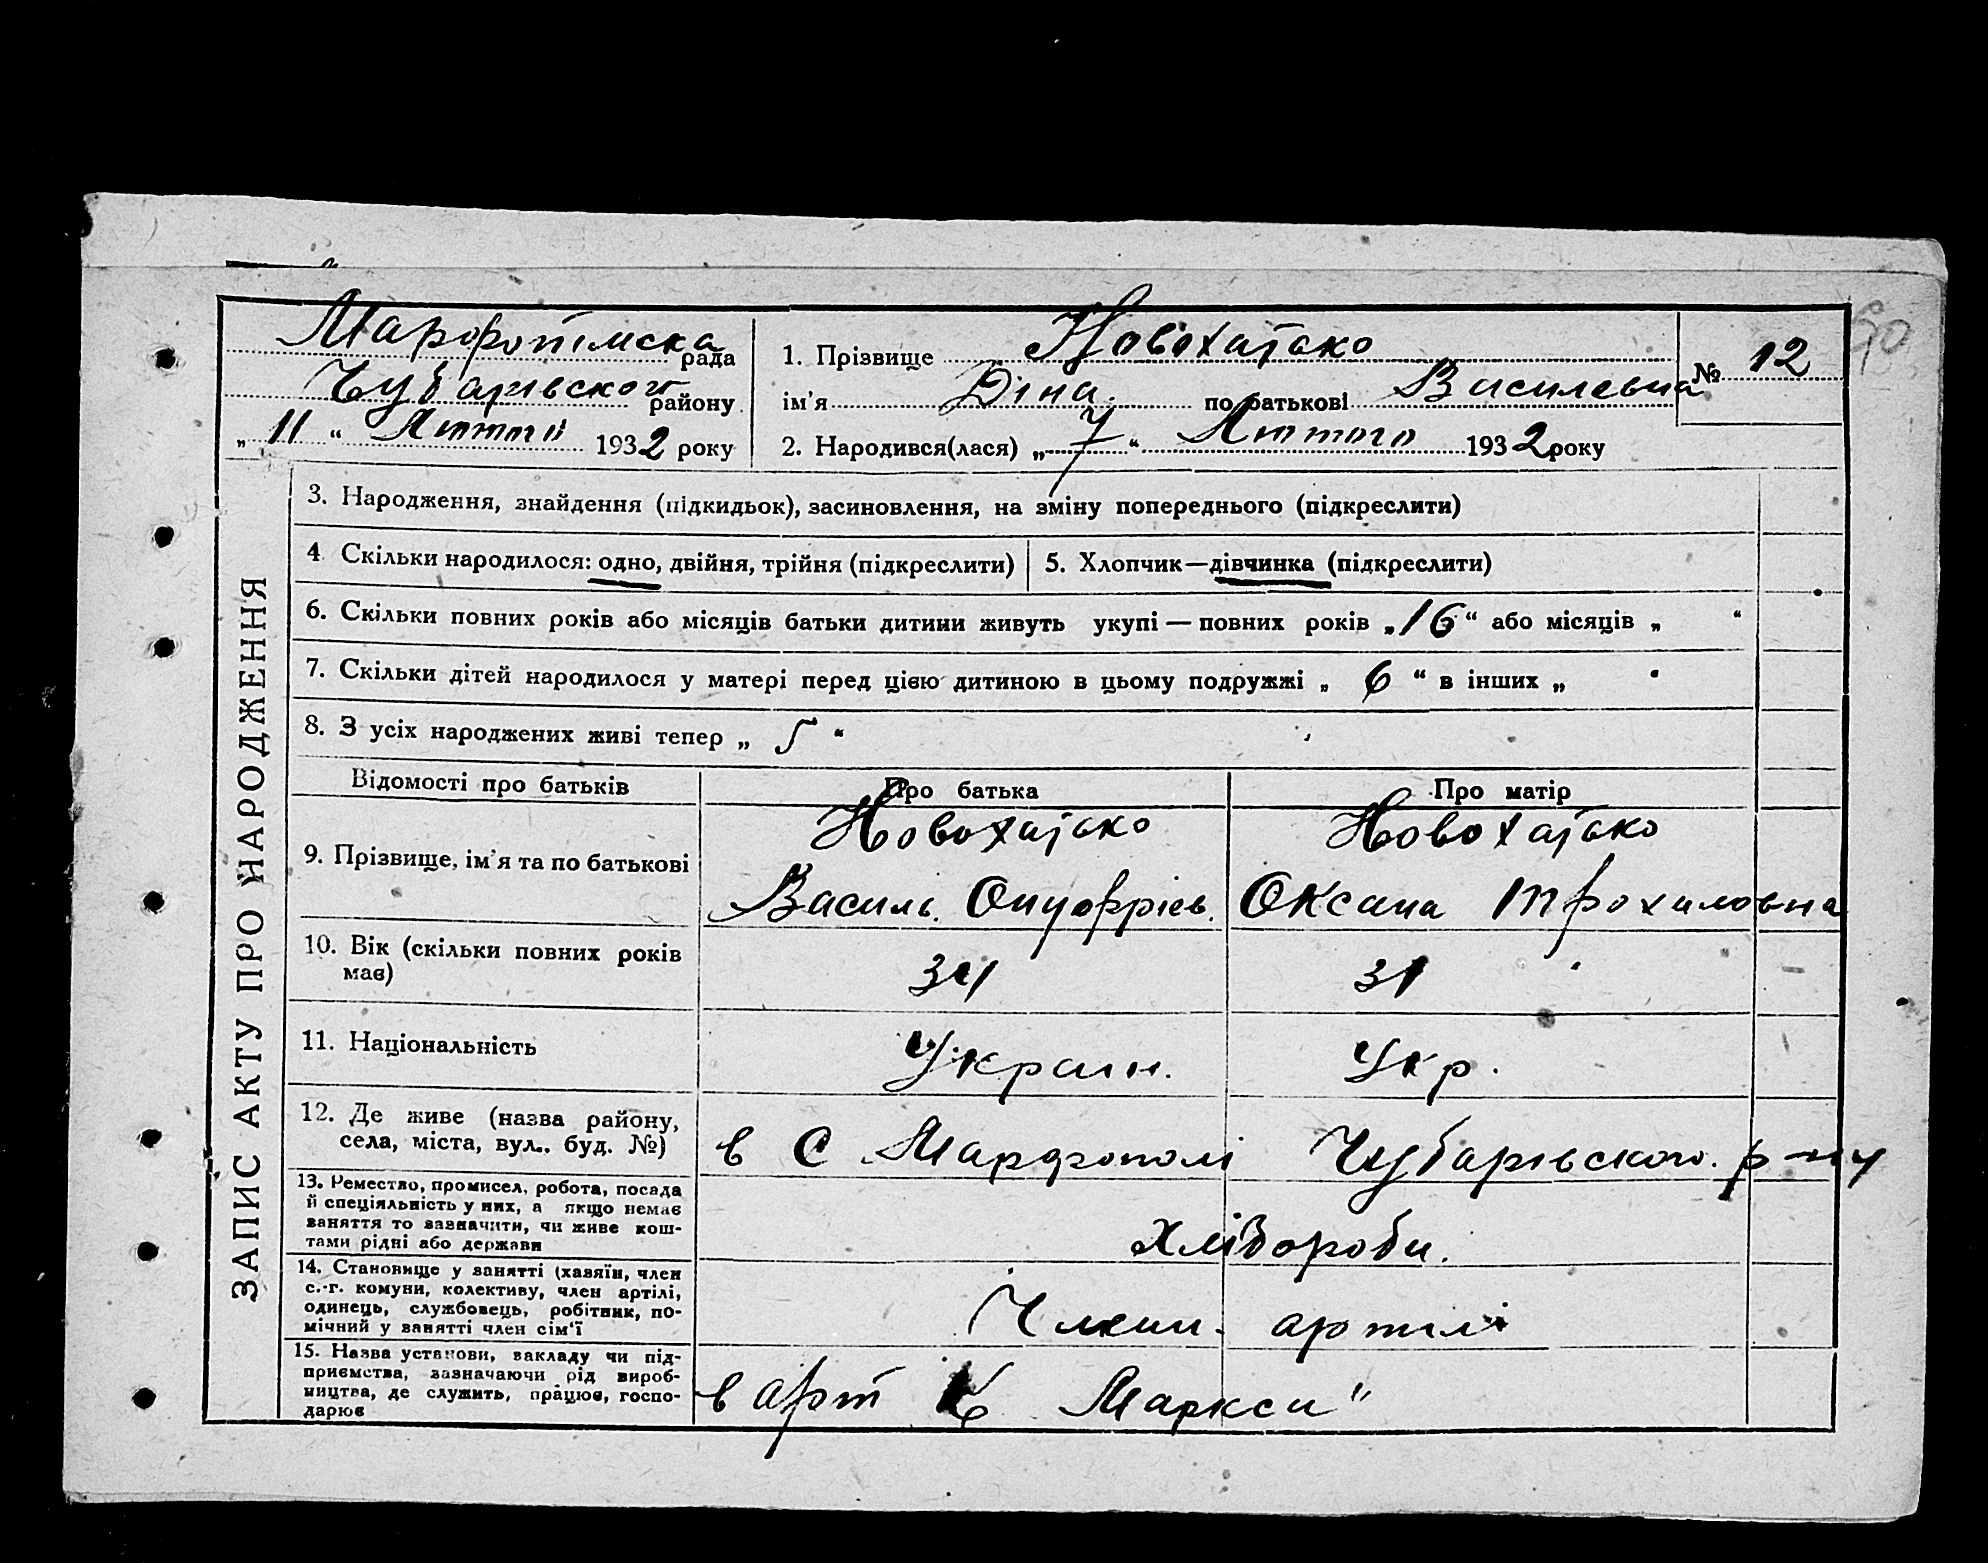 90
Марфопілска рада
Чубарівского району
„ 11 “ Лютого 1932 року
1. Прізвище Новохатько
ім’я Діна. по батькові Василевна
№ 12
2. Народився(лася) „ 7 “ Лютого 1932 року
ЗАПИС АКТУ ПРО НАРОДЖЕННЯ
3. Народження, знайдення (підкидьок), засиновлення, на зміну попереднього (підкреслити)
4 Скільки народилося: одно, двійня, трійня (підкреслити)
5. Хлопчик—дівчинка (підкреслити)
6. Скільки повних років або місяців батьки дитини живуть укупі — повних років „ 16 “ або місяців „ “
7. Скільки дітей народилося у матері перед цією дитиною в цьому подружжі „ 6 “ в інших „ “
8. З усіх народжених живі тепер „ 5 “
Відомості про батьків
Про батька
Про матір
9. Прізвище, ім’я та по батькові
Новохатько
Василь. Онуфріев.
Новохатько
Оксана Трохимовна
10. Вік (скільки повних років
має)
34
31
11. Національність
Украін.
Укр.
12. Де живе (назва району,
села, міста, вул.. буд. №)
в С Марфополі Чубарівского. р-ну
13. Ремество, промисел, робота, посада
й спеціяльність у них, а якщо немає
заняття то зазначити, чи живе кош-
тами рідні або держави
Хлібороби.
14. Становище у занятті (хазяїн, член
с.-г. комуни, колективу, член артілі,
одинець, службовець, робітник, по-
мічний у занятті член сім’ї
Члени артілі
15. Назва установи, закладу чи під-
приємства, зазначаючи рід вироб-
ництва, де служить, працює, госпо-
дарює
в арт К Маркси"